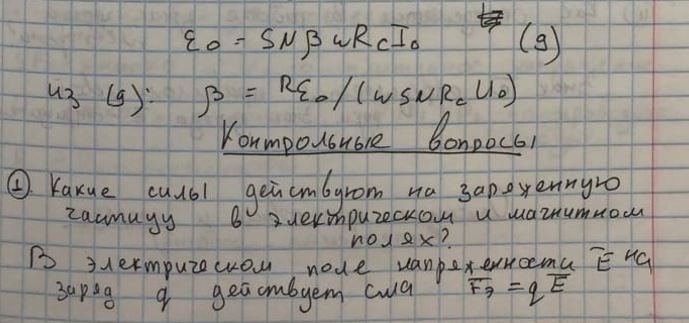 ε₀ = SNβωRcI₀ (9)
из (9): β = Rε₀/(ωSNRcU₀)
Контрольные вопросы
① Какие силы действуют на заряженную
частицу в электрическом и магнитном
полях?
В электрическом поле напряженности E̅ на
заряд q действует сила F̅э = qE̅